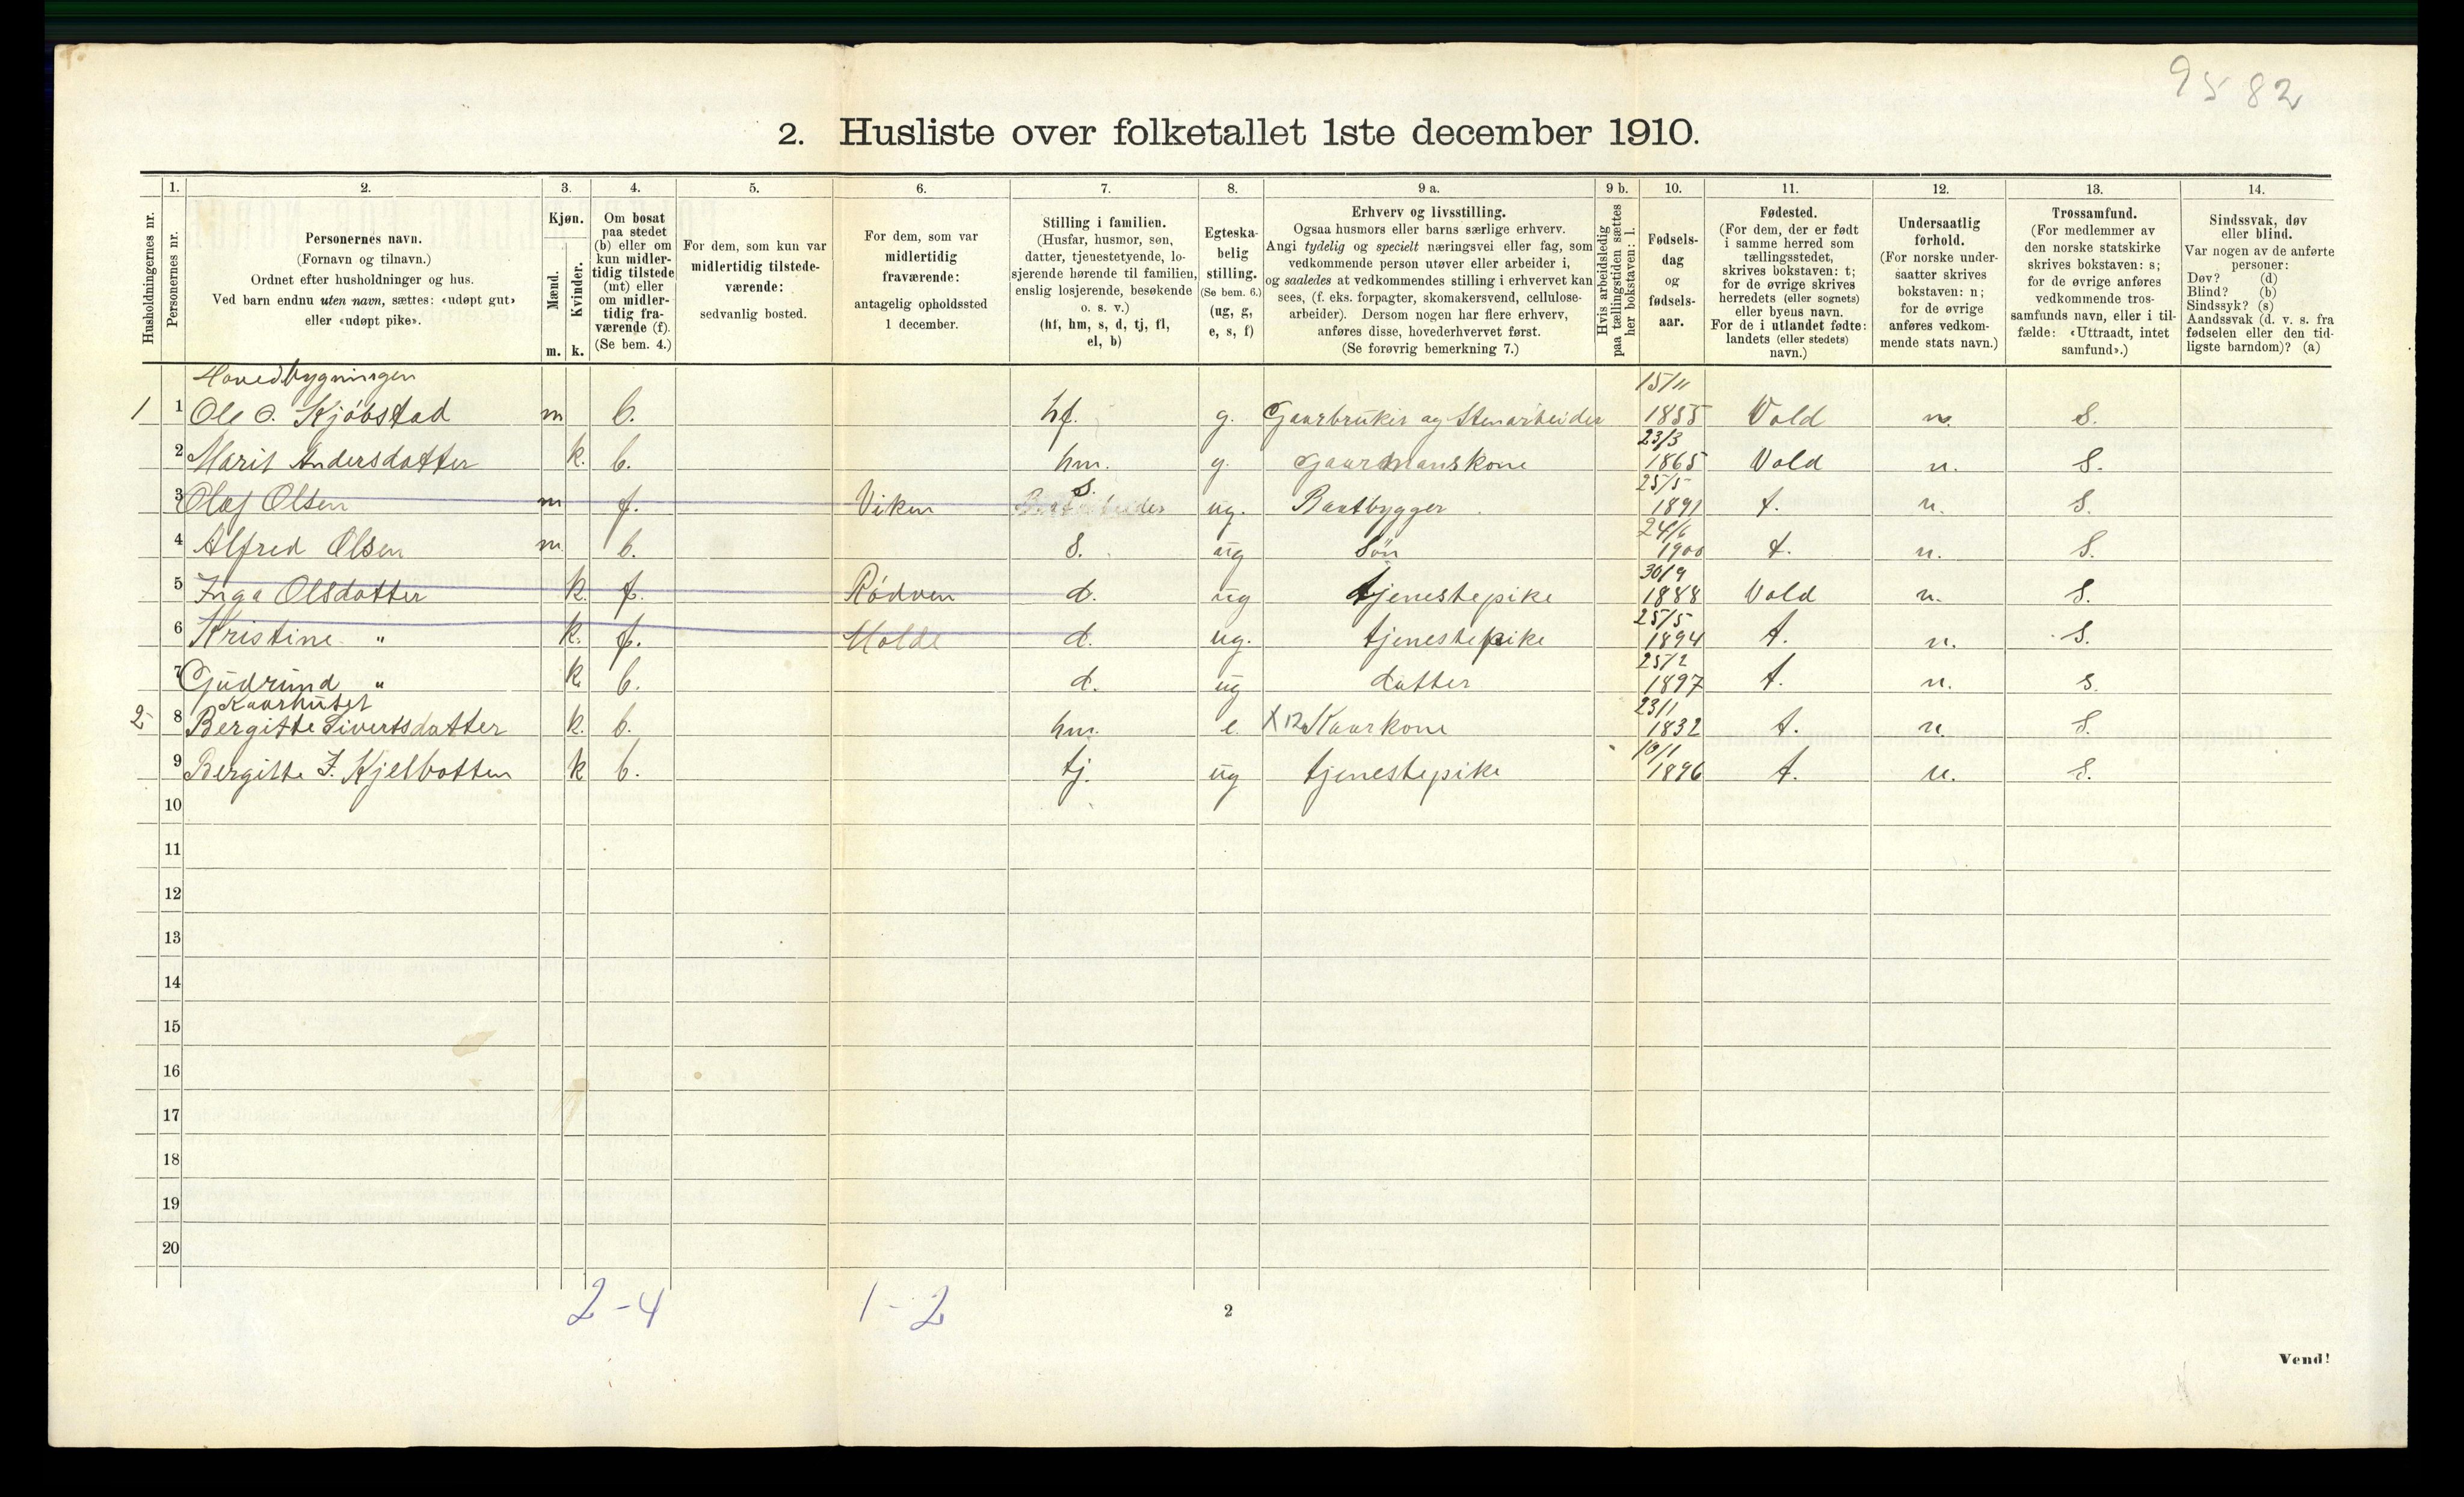 9582
2. Husliste over folketallet 1ste december 1910.
Husholdningernes nr.
1.
Personernes nr.
2.
Personernes navn.
(Fornavn og tilnavn.)
Ordnet efter husholdninger og hus.
Ved barn endnu uten navn, sættes: «udøpt gut»
eller «udøpt pike».
3.
Kjøn.
Mænd.
Kvinder.
m. k.
4.
Om bosat
paa stedet
(b) eller om
kun midler-
tidig tilstede
(mt) eller
om midler-
tidig fra-
værende (f).
(Se bem. 4.)
5.
For dem, som kun var
midlertidig tilstede-
værende:
sedvanlig bosted.
6.
For dem, som var
midlertidig
fraværende:
antagelig opholdssted
1 december.
7.
Stilling i familien.
(Husfar, husmor, søn,
datter, tjenestetyende, lo-
sjerende hørende til familien,
enslig losjerende, besøkende
o. s. v.)
(hf, hm, s, d, tj, fl,
el, b)
8.
Egteska-
belig
stilling.
(Se bem. 6.)
(ug, g,
e, s, f)
9 a.
Erhverv og livsstilling.
Ogsaa husmors eller barns særlige erhverv.
Angi tydelig og specielt næringsvei eller fag, som
vedkommende person utøver eller arbeider i,
og saaledes at vedkommendes stilling i erhvervet kan
sees, (f. eks. forpagter, skomakersvend, cellulose-
arbeider). Dersom nogen har flere erhverv,
anføres disse, hovederhvervet først.
(Se forøvrig bemerkning 7.)
9 b.
Hvis arbeidsledig
paa tællingstiden sættes
her bokstaven: l.
10.
Fødsels-
dag
og
fødsels-
aar.
11.
Fødested.
(For dem, der er født
i samme herred som
tællingsstedet,
skrives bokstaven: t;
for de øvrige skrives
herredets (eller sognets)
eller byens navn.
For de i utlandet fødte:
landets (eller stedets)
navn.)
12.
Undersaatlig
forhold.
(For norske under-
saatter skrives
bokstaven: n;
for de øvrige
anføres vedkom-
mende stats navn.)
13.
Trossamfund.
(For medlemmer av
den norske statskirke
skrives bokstaven: s;
for de øvrige anføres
vedkommende tros-
samfunds navn, eller i til-
fælde: «Uttraadt, intet
samfund».)
14.
Sindssvak, døv
eller blind.
Var nogen av de anførte
personer:
Døv? (d)
Blind? (b)
Sindssyk? (s)
Aandssvak (d. v. s. fra
fødselen eller den tid-
ligste barndom)? (a)
Hovedbygningen
1 1 Ole O. Kjøbstad m b. hf. g. Gaarbruker og Stenarbeider 15/11 1855 Vold n. S.
2 Marit Andersdatter k. b. hm. g. Gaarmanskone 23/3 1865 Vold n. S.
3 Olaf Olsen m f. Viken S. ug. Baatbygger 25/5 1891 t. n. S.
4 Alfred Olsen m b. S. ug Søn 24/6 1900 t. n. S.
5 Inga Olsdatter k. f. Rødven d. ug tjenestepike 30/9 1888 Vold n. S.
6 Kristine " k. f. Molde d. ug. tjenestepike 25/5 1894 t. n. S.
7 Gudrund " k b. d. ug datter 25/2 1897 t. n. S.
Kaarhuset
2 8 Bergitte Sivertsdatter k. b. hm. e. X 12 Kaarkone 23/1 1832 t. n. S.
9 Bergitte J. Kjelbotten k b. tj. ug tjenestepike 10/1 1896 t. n. S.
10
11
12
13
14
15
16
17
18
19
20
2-4 1-2
2
Vend!